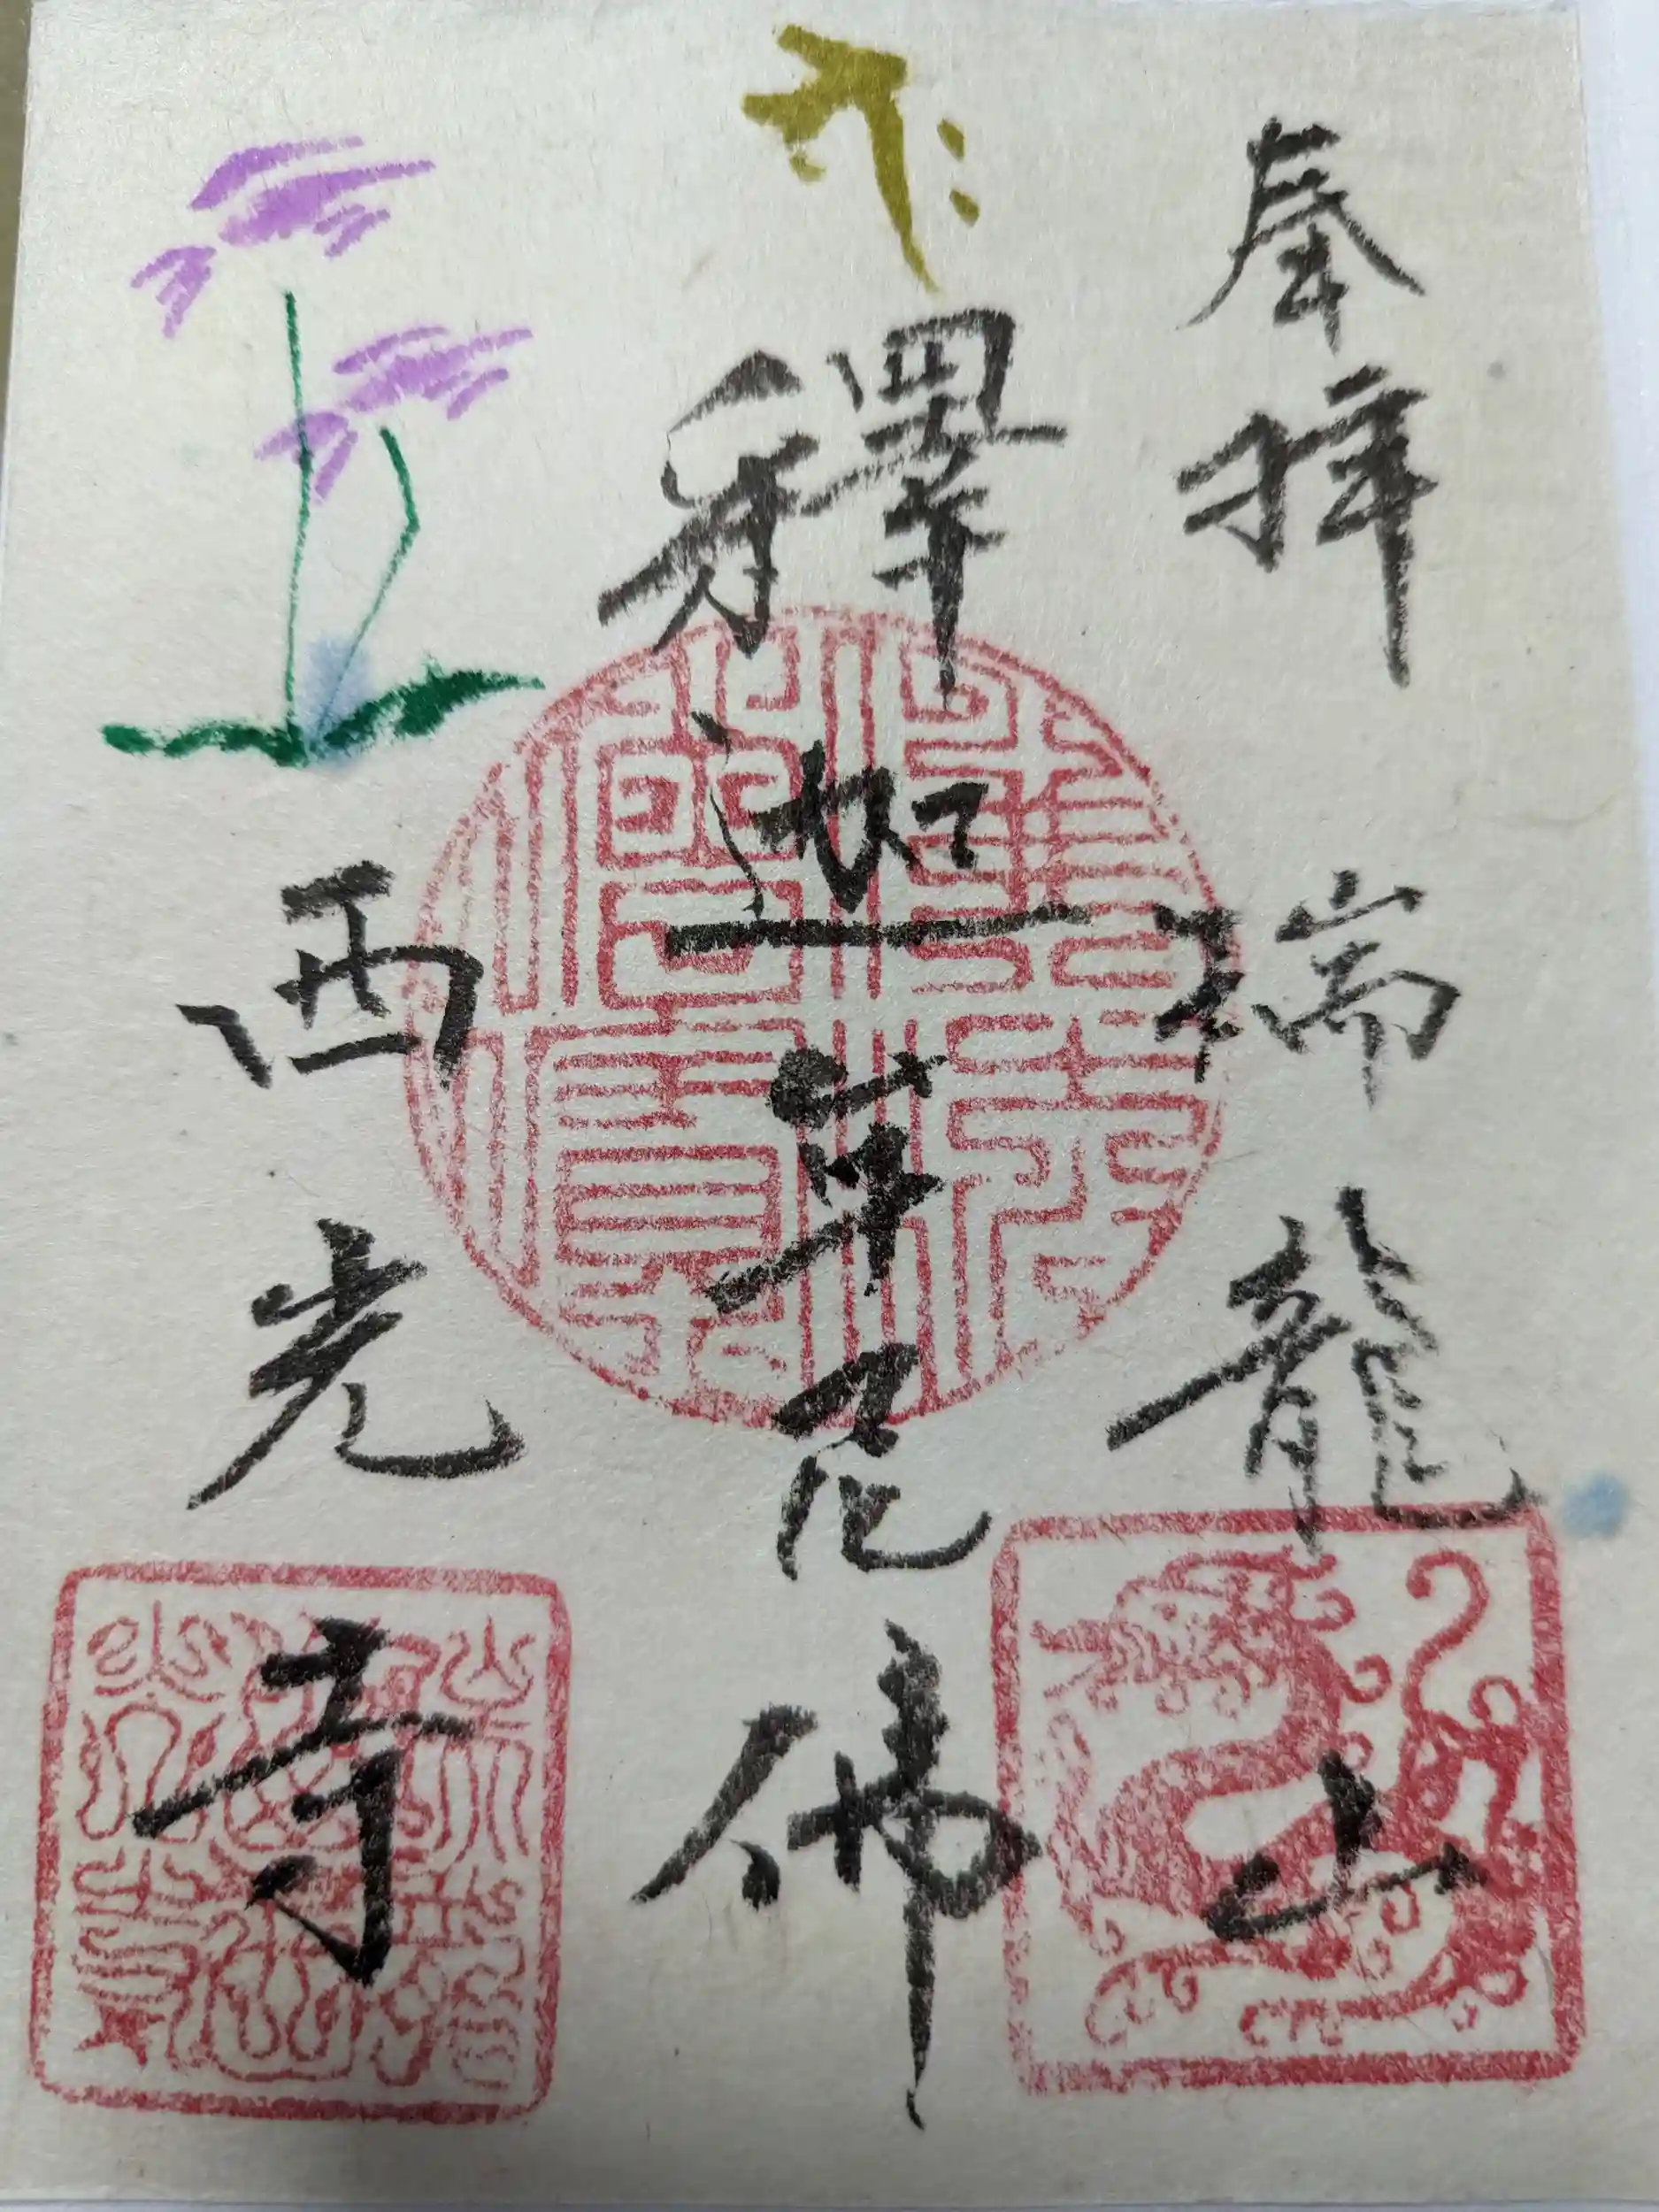 奉拝
瑞龍山
𑖥𑖾
釋迦牟尼佛
西光寺